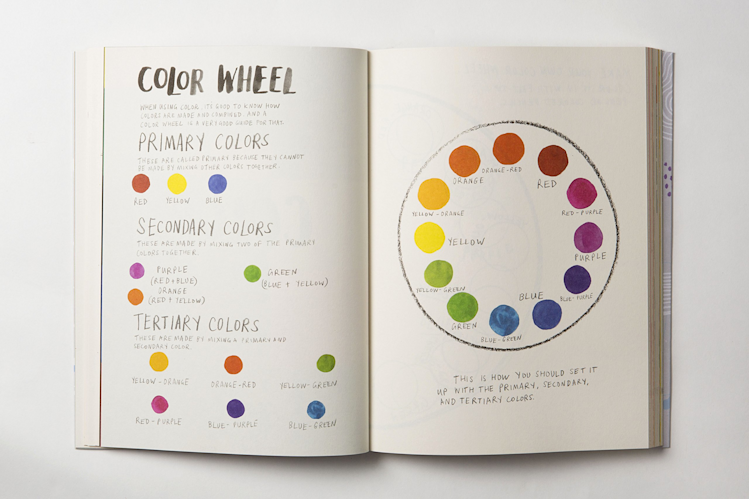 COLOR WHEEL
WHEN USING COLOR, IT'S GOOD TO KNOW HOW
COLORS ARE MADE AND COMBINED, AND A
COLOR WHEEL IS A VERY GOOD GUIDE FOR THAT.
PRIMARY COLORS
THESE ARE CALLED PRIMARY BECAUSE THEY CANNOT
BE MADE BY MIXING OTHER COLORS TOGETHER.
RED YELLOW BLUE
SECONDARY COLORS
THESE ARE MADE BY MIXING TWO OF THE PRIMARY
COLORS TOGETHER.
PURPLE
(RED + BLUE)
ORANGE
(RED + YELLOW)
GREEN
(BLUE + YELLOW)
TERTIARY COLORS
THESE ARE MADE BY MIXING A PRIMARY AND
SECONDARY COLOR.
YELLOW-ORANGE ORANGE-RED YELLOW-GREEN
RED-PURPLE BLUE-PURPLE BLUE-GREEN
ORANGE-RED
RED
RED-PURPLE
PURPLE
BLUE-PURPLE
BLUE
BLUE-GREEN
GREEN
YELLOW-GREEN
YELLOW
YELLOW-ORANGE
ORANGE
THIS IS HOW YOU SHOULD SET IT
UP WITH THE PRIMARY, SECONDARY,
AND TERTIARY COLORS.